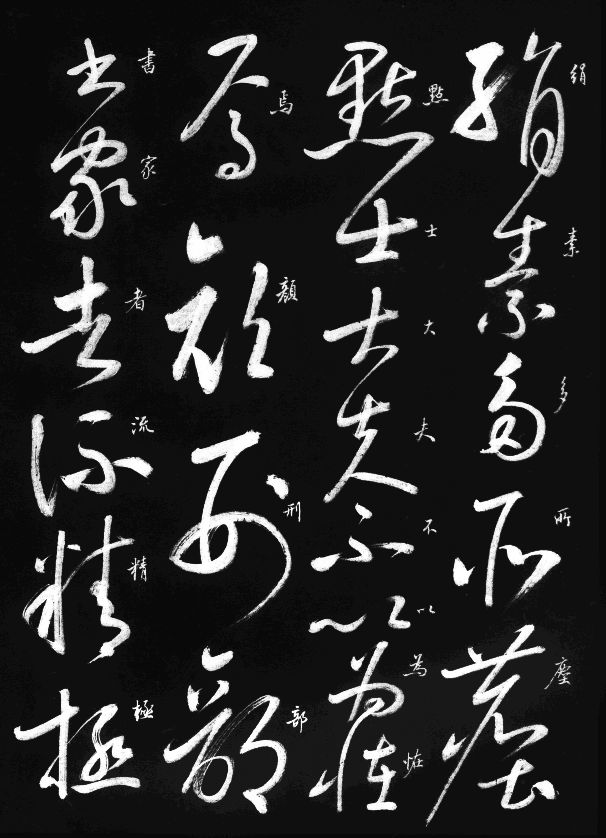 絹素多所塵
點士大夫不以為恠
焉顏刑部
書家者流精極